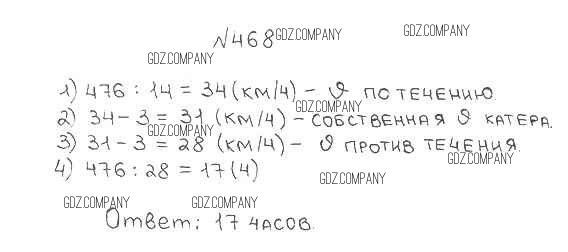 №468 GDZ.COMPANY GDZ.COMPANY
GDZ.COMPANY
1) 476 : 14 = 34 (км/ч) - υ по течению.
GDZ.COMPANY
2) 34 - 3 = 31 (км/ч) - собственная υ катера.
GDZ.COMPANY
3) 31 - 3 = 28 (км/ч) - υ против течения.
GDZ.COMPANY
4) 476 : 28 = 17 (ч)
GDZ.COMPANY
GDZ.COMPANY GDZ.COMPANY
Ответ: 17 часов.